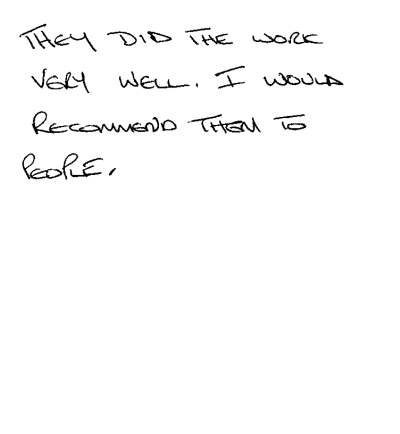 THEY DID THE WORK
VERY WELL. I WOULD
RECOMMEND THEM TO
PEOPLE.